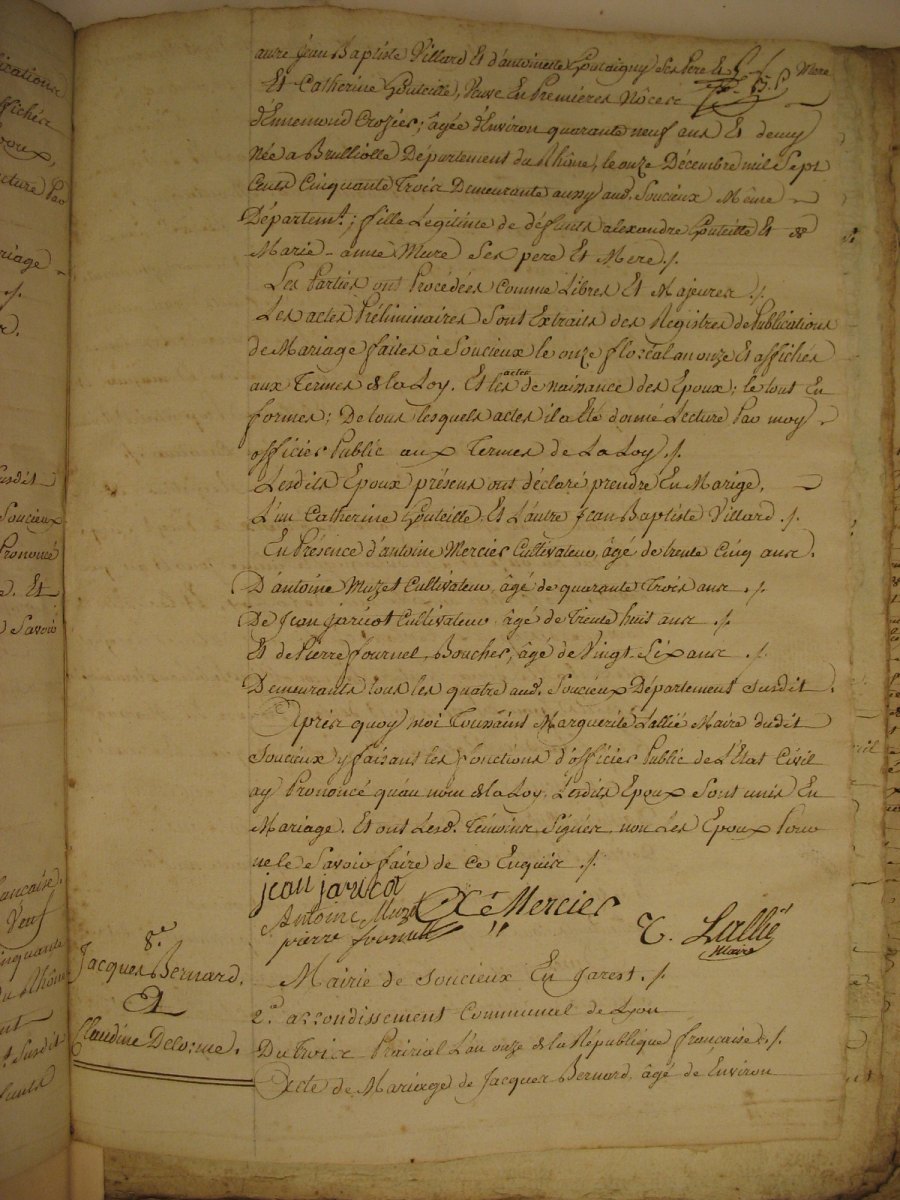 ication
ffichée
oux,
cture Par
riage
usdit
Soucieux
Prononcé
e. Et
Savoir
ancaise.
Veuf
inquante
du Rhône
Susdit
autre Jean Baptiste Villard Et d'antoinette Ses Pere Et Mere
Et Catherine Gouteille, Veuve En Premières Nôces
d'Ennemond Crozier; âgée d'Environ quarante neuf ans Et demy
Née a Brulliolle Département du Rhône, le onze Décembre mil Sept
Cents Cinquante Trois Demeurante aussy aud. Soucieux Même
Départemt.; fille Legitime de défunts alexandre Gouteille Et de
Marie-anne Mure Ses pere Et Mere ./.
Les Parties ont Procédées Comme Libres Et Majeures ./.
Les actes Préliminaires Sont Extraits des Registres de Publications
de Mariage faites à Soucieux le onze floréal an onze Et affichés
aux Termes de la Loy. Et les actes de naissance des Epoux; le tout En
formes; De tous lesquels actes il a Eté donné Lecture Par moy
officier Public aux Termes de La Loy ./.
Lesdits Epoux présens ont déclaré prendre En Marige,
L'un Catherine Gouteille, Et L'autre Jean Baptiste Villard ./.
En Présence d'antoine Mercier Cultivateur, âgé de trente Cinq ans.
D'antoine Muzet Cultivateur, âgé de quarante Trois ans ./.
De Jean Jaricot Cultivateur âgé de Trente huit ans ./.
Et de Pierre fournel, Boucher, âgé de Vingt-Six ans ./.
Demeurants tous les quatre aud. Soucieux Département susdit.
Après quoy moi Toussaint Marguerite Lallié Maire dudit
Soucieux y faisant les fonctions d'officier Public de L'Etat Civil
ay Prononcé qu'au nom de la Loy, Lesdits Epoux Sont unis En
Mariage. Et ont Lesd. Témoins Signés non Les Epoux Pour
ne le Savoir faire de Ce Enquis ./.
jean jaricot
Antoine Muzet Mercier
pierre fournel T. Lallié
Maire
8.e
Jacques Bernard.
Et
Claudine Delorme.
Mairie de Soucieux En Jarest ./.
2.e arrondissement Communal de Lyon
Du Troize Prairial L'an onze de la République française ./.
Acte de Mariage de Jacques Bernard, âgé de Environ